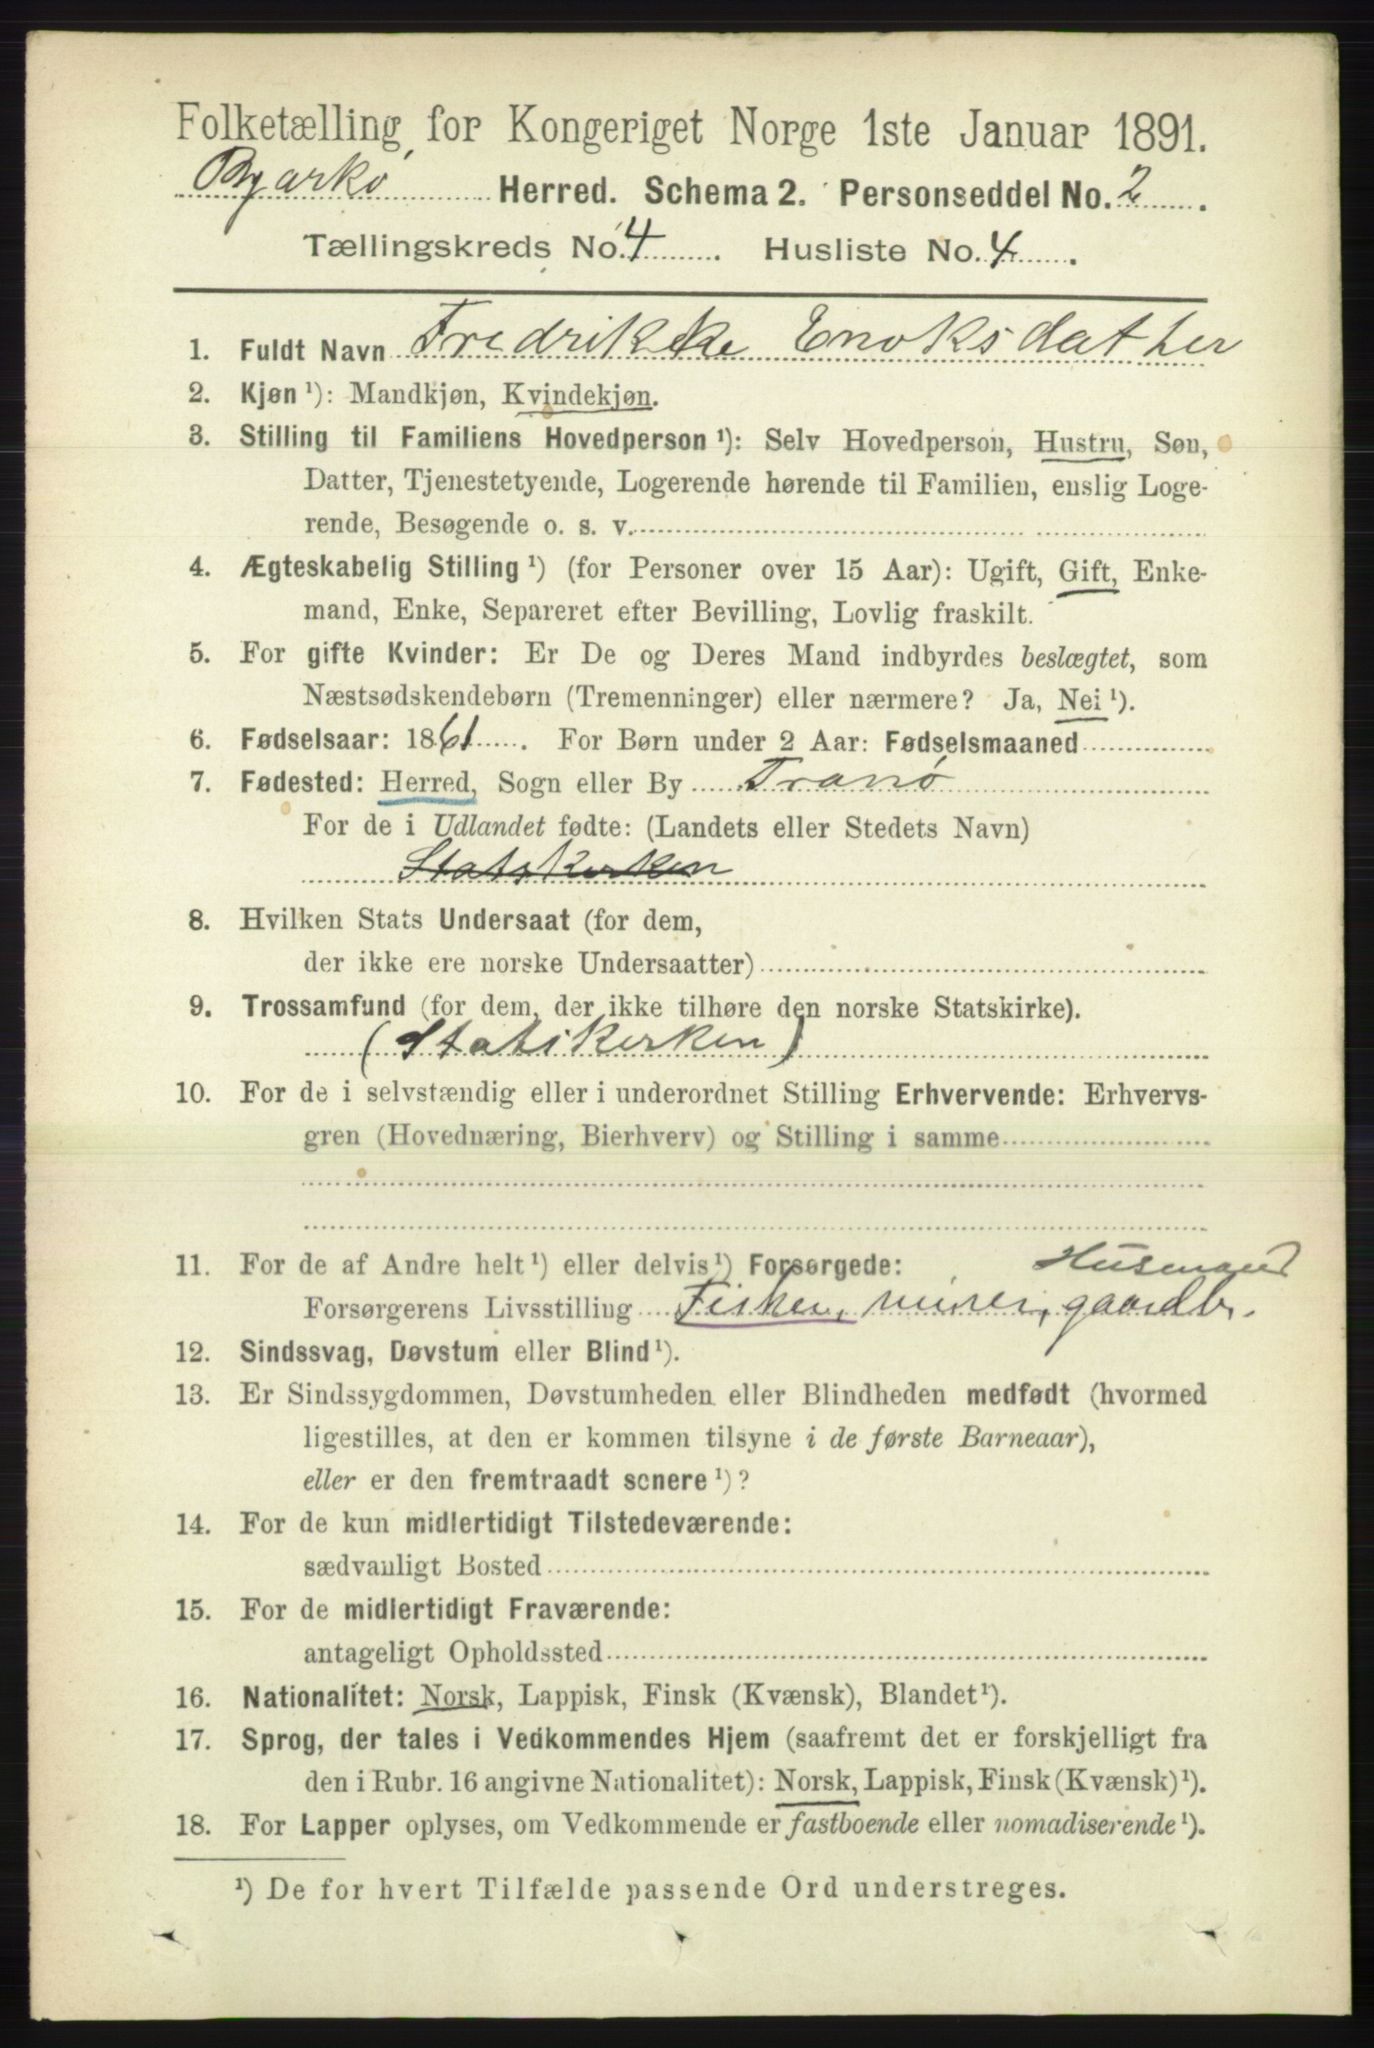 Folketælling for Kongeriget Norge 1ste Januar 1891.
Bjarkø Herred. Schema 2. Personseddel No. 2.
Tællingskreds No. 4. Husliste No. 4.
1. Fuldt Navn Fredrikke Enoksdatter
2. Kjøn ¹): Mandkjøn, Kvindekjøn.
3. Stilling til Familiens Hovedperson ¹): Selv Hovedperson, Hustru, Søn,
Datter, Tjenestetyende, Logerende hørende til Familien, enslig Loge-
rende, Besøgende o. s. v.
4. Ægteskabelig Stilling ¹) (for Personer over 15 Aar): Ugift, Gift, Enke-
mand, Enke, Separeret efter Bevilling, Lovlig fraskilt.
5. For gifte Kvinder: Er De og Deres Mand indbyrdes beslægtet, som
Næstsødskendebørn (Tremenninger) eller nærmere? Ja, Nei ¹).
6. Fødselsaar: 1861. For Børn under 2 Aar: Fødselsmaaned
7. Fødested: Herred, Sogn eller By Tranø
For de i Udlandet fødte: (Landets eller Stedets Navn)
Statskerken
8. Hvilken Stats Undersaat (for dem,
der ikke ere norske Undersaatter)
9. Trossamfund (for dem, der ikke tilhøre den norske Statskirke).
(Statskerken)
10. For de i selvstændig eller i underordnet Stilling Erhvervende: Erhvervs-
gren (Hovednæring, Bierhverv) og Stilling i samme
11. For de af Andre helt ¹) eller delvis ¹) Forsørgede: Husmand
Forsørgerens Livsstilling Fisker, gaardb.
12. Sindssvag, Døvstum eller Blind ¹).
13. Er Sindssygdommen, Døvstumheden eller Blindheden medfødt (hvormed
ligestilles, at den er kommen tilsyne i de første Barneaar),
eller er den fremtraadt senere ¹)?
14. For de kun midlertidigt Tilstedeværende:
sædvanligt Bosted
15. For de midlertidigt Fraværende:
antageligt Opholdssted
16. Nationalitet: Norsk, Lappisk, Finsk (Kvænsk), Blandet ¹).
17. Sprog, der tales i Vedkommendes Hjem (saafremt det er forskjelligt fra
den i Rubr. 16 angivne Nationalitet): Norsk, Lappisk, Finsk (Kvænsk) ¹).
18. For Lapper oplyses, om Vedkommende er fastboende eller nomadiserende ¹).
¹) De for hvert Tilfælde passende Ord understreges.